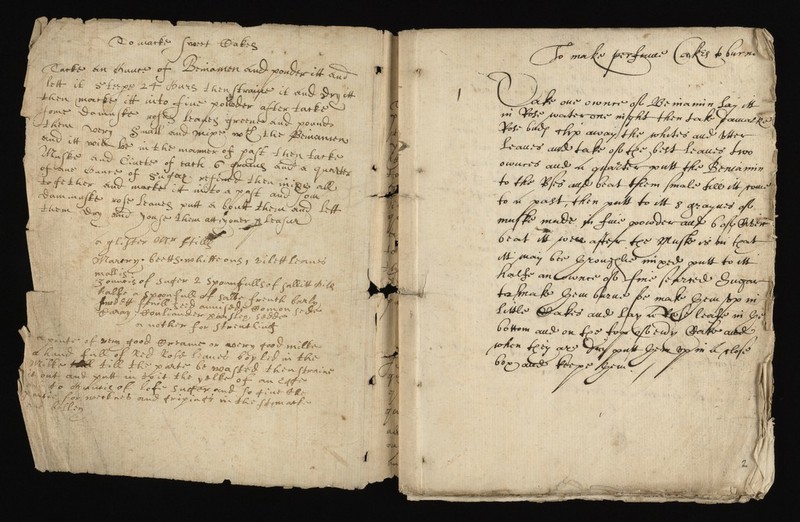 To macke sweet Cakes
Tacke an Ounce of Beniamen and pouder itt and
lett it steepe 24 hours then straine it and dry itt
then macke itt into a fine pouder after tacke
some dammaske roses leaues greene and pound
them very small and mixe wth the Beniamen
and itt will be in the manner of past then tacke
Muske and Ciuete of each 6 graines and a quarter
of an Ounce of Sugar refined then mixe all
together and macke it into a past and
dammoske rose leaues putt a bout them and lett
them dry and youse them att your pleasur
a glister
Marcry beets violett leaues
mallis
2 Spoonfulls of sallitt oile
halfe a spoonfull of salte french barly
fenell seed anniseede
parsley seede
a nother for strentking
a pinte of very good Creame or very good milke
a hand full of Red Rose leaues boyled in the
Milke till the parte be wasted then straine
it out and putt in to it the yelke of an Egge
to ounces of lofe suger and so giue the
for weeknes and gripings in the stomacke
belley
To make perfume Cakes to burne
1
Take one ownce of Beniamin lay itt
in Rose water one night then take Damaske
Rose buds clip away the whites and utter
leaues and take of the best leaues two
ownces and a quarter putt the Beniamin
to the Roses and beat them smale till itt come
to a past then putt to itt 8 graynes of
muske made in fine powder and 6 of
beat itt well after the Muske is in that
itt may bee throughly mixed putt to itt
halfe an ownce of fine searced Sugar
to make them burne so make them up in
little Cakes and lay a Rose leafe in the
bottom and on the top of euery Cake and
when they are dry putt them up in a close
box and keepe them
2